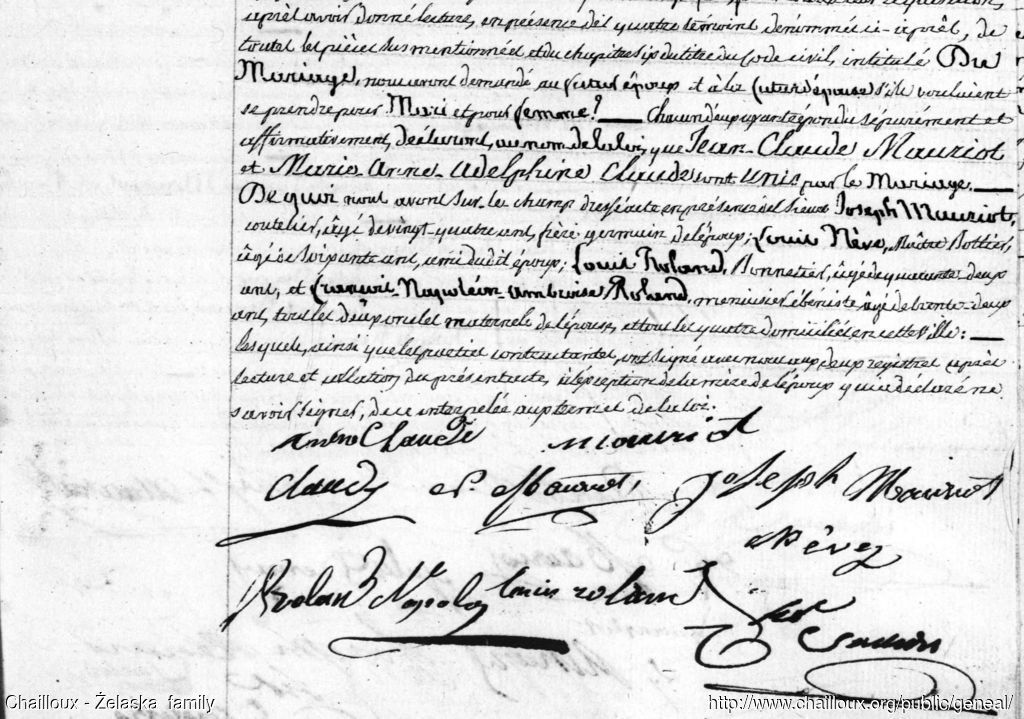 après avoir donné lecture, en présence des quatre témoins dénommés ci-après, de
toutes les pièces sus mentionnées et du chapitre six du titre du Code civil, intitulé Du
Mariage, nous avons demandé au futur époux et à la future épouse s'ils voulaient
se prendre pour Mari et pour femme? Chacun d'eux ayant répondu séparément et
affirmativement, déclarons, au nom de la loi, que Jean-Claude Mauriot
et Marie-Anne-Adelphine Claude sont unis par le Mariage.
De quoi nous avons sur le champ dressé acte en présence des sieurs Joseph Mauriot,
coutelier, âgé de vingt-quatre ans, frère germain de l'époux; Louis Nève, Maître Bottier,
âgé de soixante ans, ami dudit époux; Louis Roland, Bonnetier, âgé de quarante-deux
ans, et François-Napoléon-Ambroise Roland, menuisier ébéniste âgé de trente-deux
ans, tous les deux oncles maternels de l'épouse, et tous les quatre domiciliés en cette ville:
lesquels, ainsi que les parties contractantes, ont signé avec nous aux deux registres après
lecture et collation du présent acte, à l'exception de la mère de l'époux qui a déclaré ne
savoir signer, de ce interpelée aux termes de la loi.
Claude Mauriot
Claude Mauriot, Joseph Mauriot
Nève
Roland Napoléon Louis roland
Chailloux - Żelaska family
http://www.chailloux.org/public/geneal/